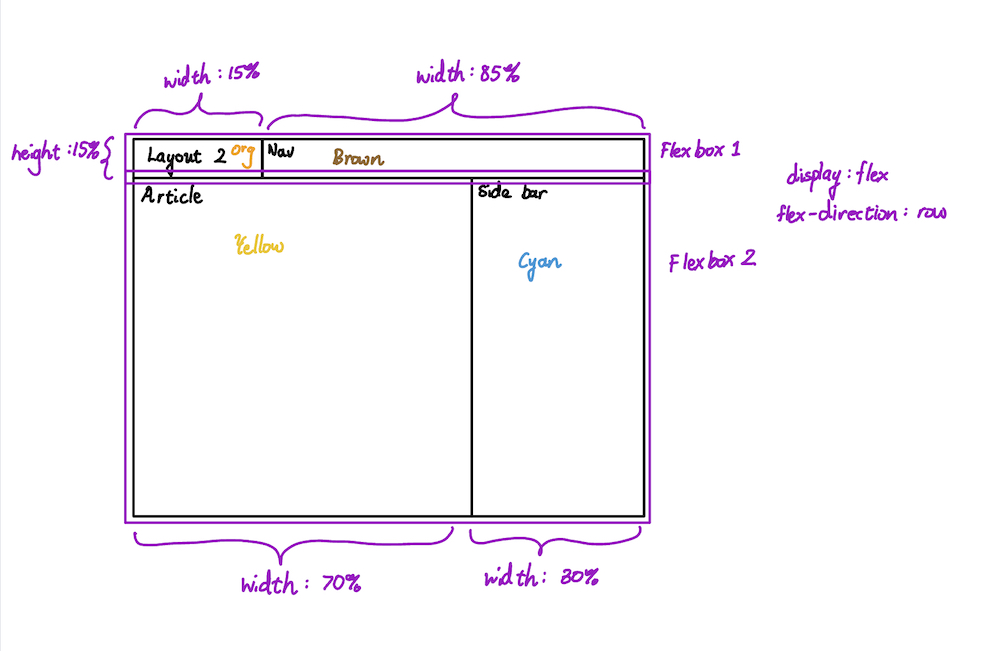 width : 15%
width : 85%
height : 15%
Layout 2 Org
Nav
Brown
Flexbox 1
display : flex
flex-direction : row
Article
Side bar
Yellow
Cyan
Flexbox 2
width : 70%
width : 30%